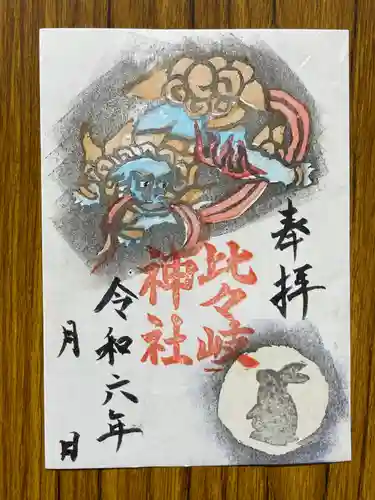 奉拝
比々岐
神社
令和六年
月 日